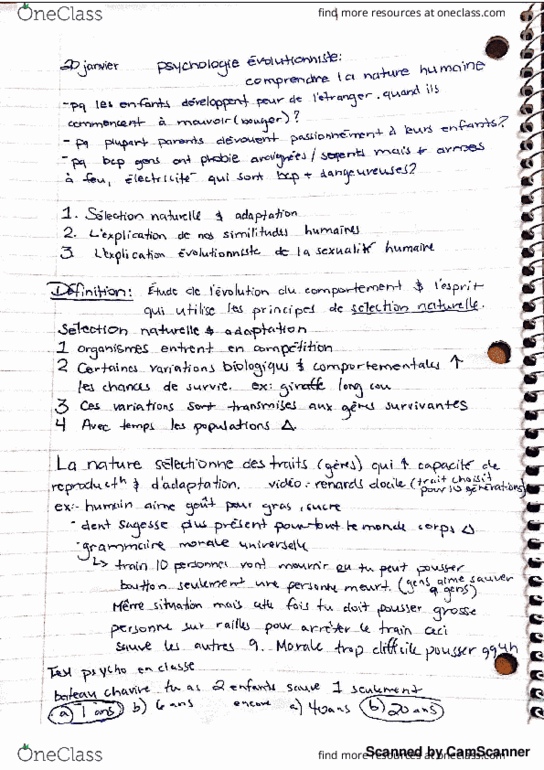 OneClass
find more resources at oneclass.com
20 janvier psychologie évolutionniste:
comprendre la nature humaine
- pq les enfants développent peur de l'étranger. quand ils
commencent à mouvoir (bouger)?
- pq plupart parents dévouent passionnément à leurs enfants?
- pq bcp gens ont phobie araignées/serpents mais + armes
à feu, électricité qui sont bcp + dangeureuses?
1. Sélection naturelle & adaptation
2. L'explication de nos similitudes humaines
3 L'explication évolutionniste de la sexualité humaine
Définition: Étude de l'évolution du comportement & l'esprit
qui utilise les principes de sélection naturelle.
Sélection naturelle & adaptation
1 organismes entrent en compétition
2 Certaines variations biologiq & comportementales ↑
les chances de survie. ex: giraffe long cou
3 Ces variations sont transmises aux gênes survivantes
4 Avec temps les populations Δ.
La nature sélectionne des traits (gènes) qui ↑ capacité de
reproduct & d'adaptation. vidéo: renards docile (trait choisit
pour 10 générations)
ex:- humain aime goût pour gras, sucre
- dent sagesse plus présent pour tout le monde corps Δ
- grammaire morale universelle
↳ train 10 personnes vont mourrir ou tu peut pousser
boutton seulement une personne meurt. (gens aime sauver
9 gens)
Même situation mais cette fois tu doit pousser grosse
personne sur railles pour arrêter le train ceci
sauve les autres 9. Morale trop difficile pousser qqun
Test psycho en classe
bateau chavire tu as 2 enfants sauve 1 seulement
a) 1 ans b) 6 ans encore a) 40ans b) 20 ans
OneClass
find more resources at oneclass.com
Scanned by CamScanner